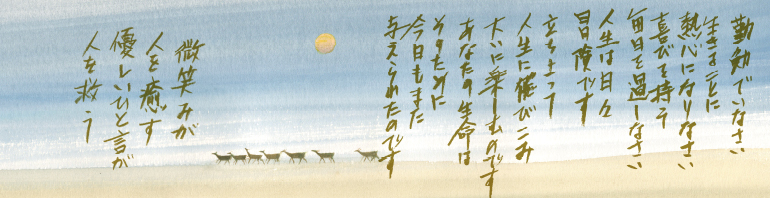 勤勉でいなさい
生きることに
熱心になりなさい
喜びを持ち
毎日を過しなさい
人生は日々
冒険です
立ち上って
人生に飛びこみ
大いに楽しむのです
あなたの生命は
そのために
今日もまた
与えられたのです
微笑みが
人を癒す
優しいひと言が
人を救う